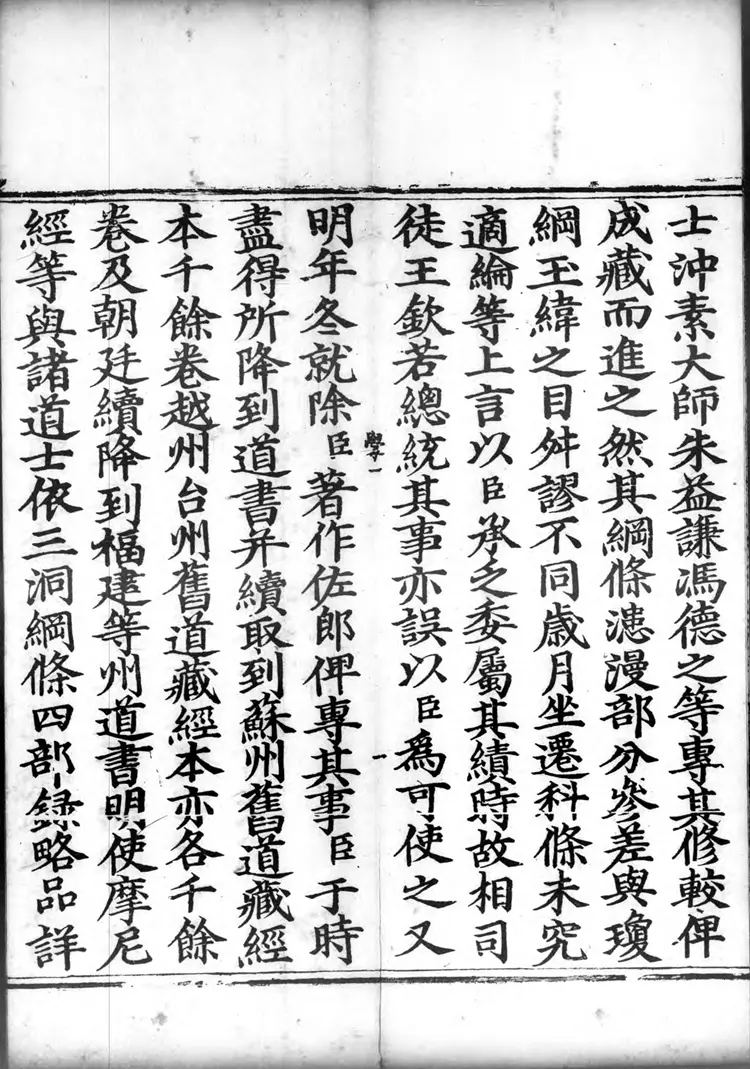 士沖素大師朱益謙馮德之等專其修較俾
成藏而進之然其綱條漶漫部分參差與瓊
綱玉緯之目舛謬不同歲月坐遷科條未究
適綸等上言以臣承乏委屬其績時故相司
徒王欽若總統其事亦誤以臣爲可使之又
學一
一
明年冬就除臣著作佐郎俾專其事臣于時
盡得所降到道書并續取到蘇州舊道藏經
本千餘卷越州台州舊道藏經本亦各千餘
卷及朝廷續降到福建等州道書明使摩尼
經等與諸道士依三洞綱條四部録略品詳